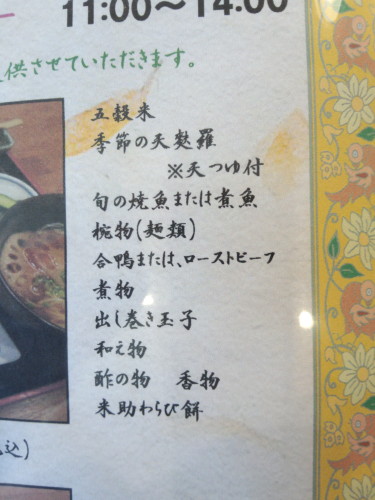 11:00〜14:00
供させていただきます。
五穀米
季節の天麩羅
※天つゆ付
旬の焼魚または煮魚
椀物(麺類)
合鴨または、ローストビーフ
煮物
出し巻き玉子
和え物
酢の物 香物
米助わらび餅
込)